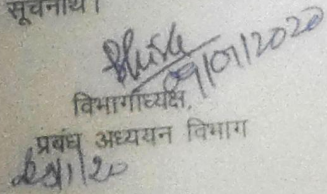 सूचनार्थ।
09/01/2020
विभागाध्यक्ष,
प्रबंध अध्ययन विभाग